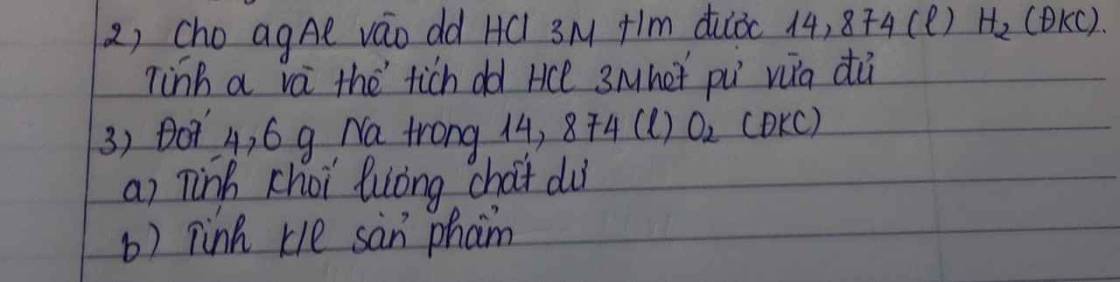 2) Cho ag Al vào dd HCl 3M tìm được 14,874 (l) H₂ (ĐKC).
Tính a và thể tích dd HCl 3M hết pứ vừa đủ
3) Đốt 4,6 g Na trong 14,874 (l) O₂ (ĐKC)
a) Tính khối lượng chất dư
b) Tính k/l sản phẩm